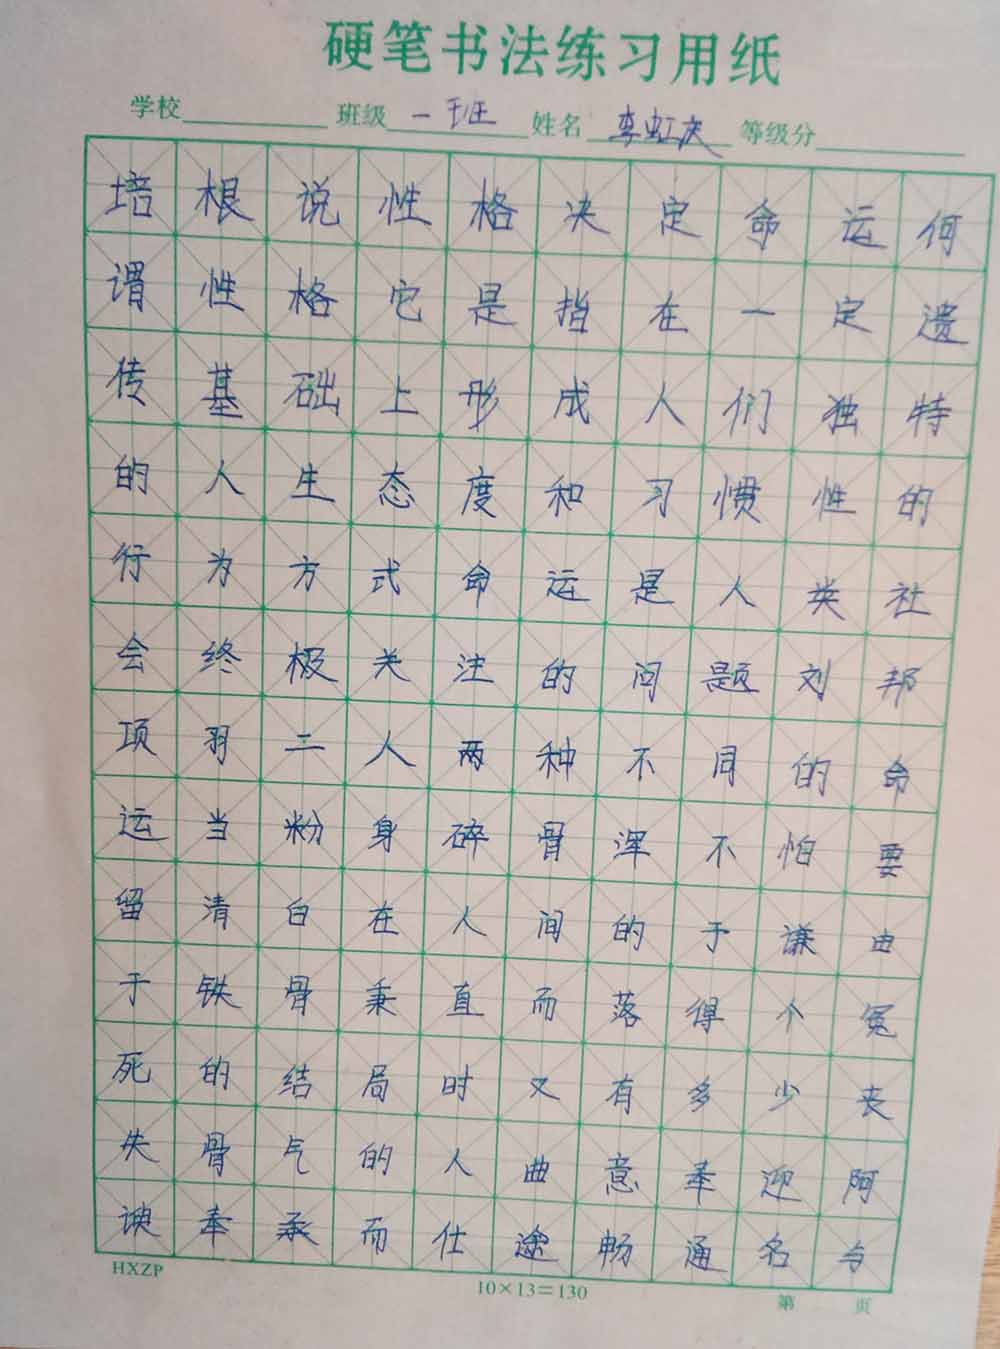 硬笔书法练习用纸
学校 班级 一班 姓名 李虹庆 等级分
培根说性格决定命运何
谓性格它是指在一定遗
传基础上形成人们独特
的人生态度和习惯性的
行为方式命运是人类社
会终极关注的问题刘邦
项羽二人两种不同的命
运当粉身碎骨浑不怕要
留清白在人间的于谦由
于铁骨秉直而落得个冤
死的结局时又有多少丧
失骨气的人曲意奉迎阿
谀奉承而仕途畅通名与
HXZP 10×13=130 第 页